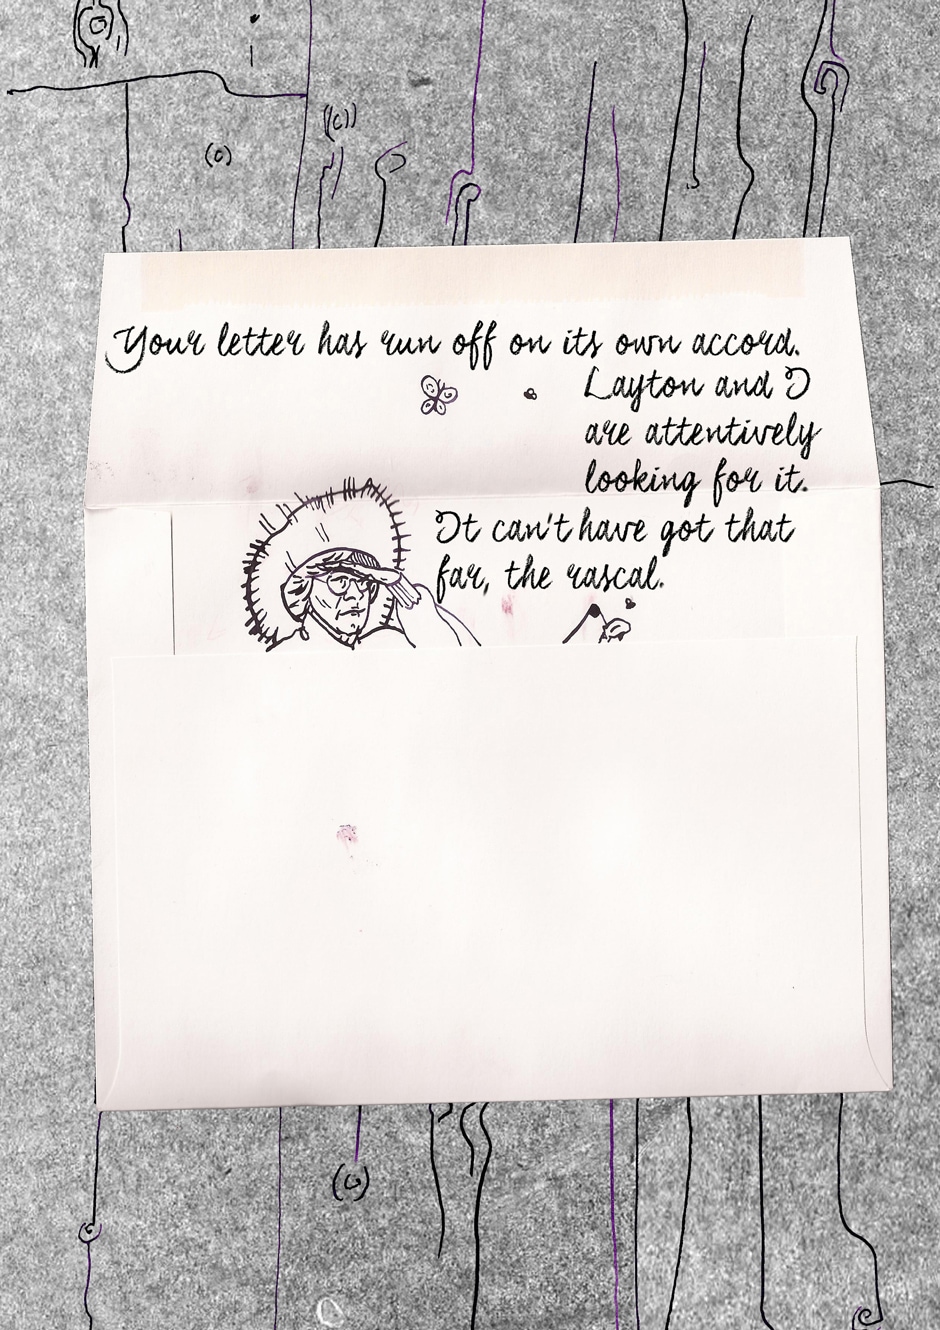 Your letter has run off on its own accord.
Layton and I
are attentively
looking for it.
It can't have got that
far, the rascal.